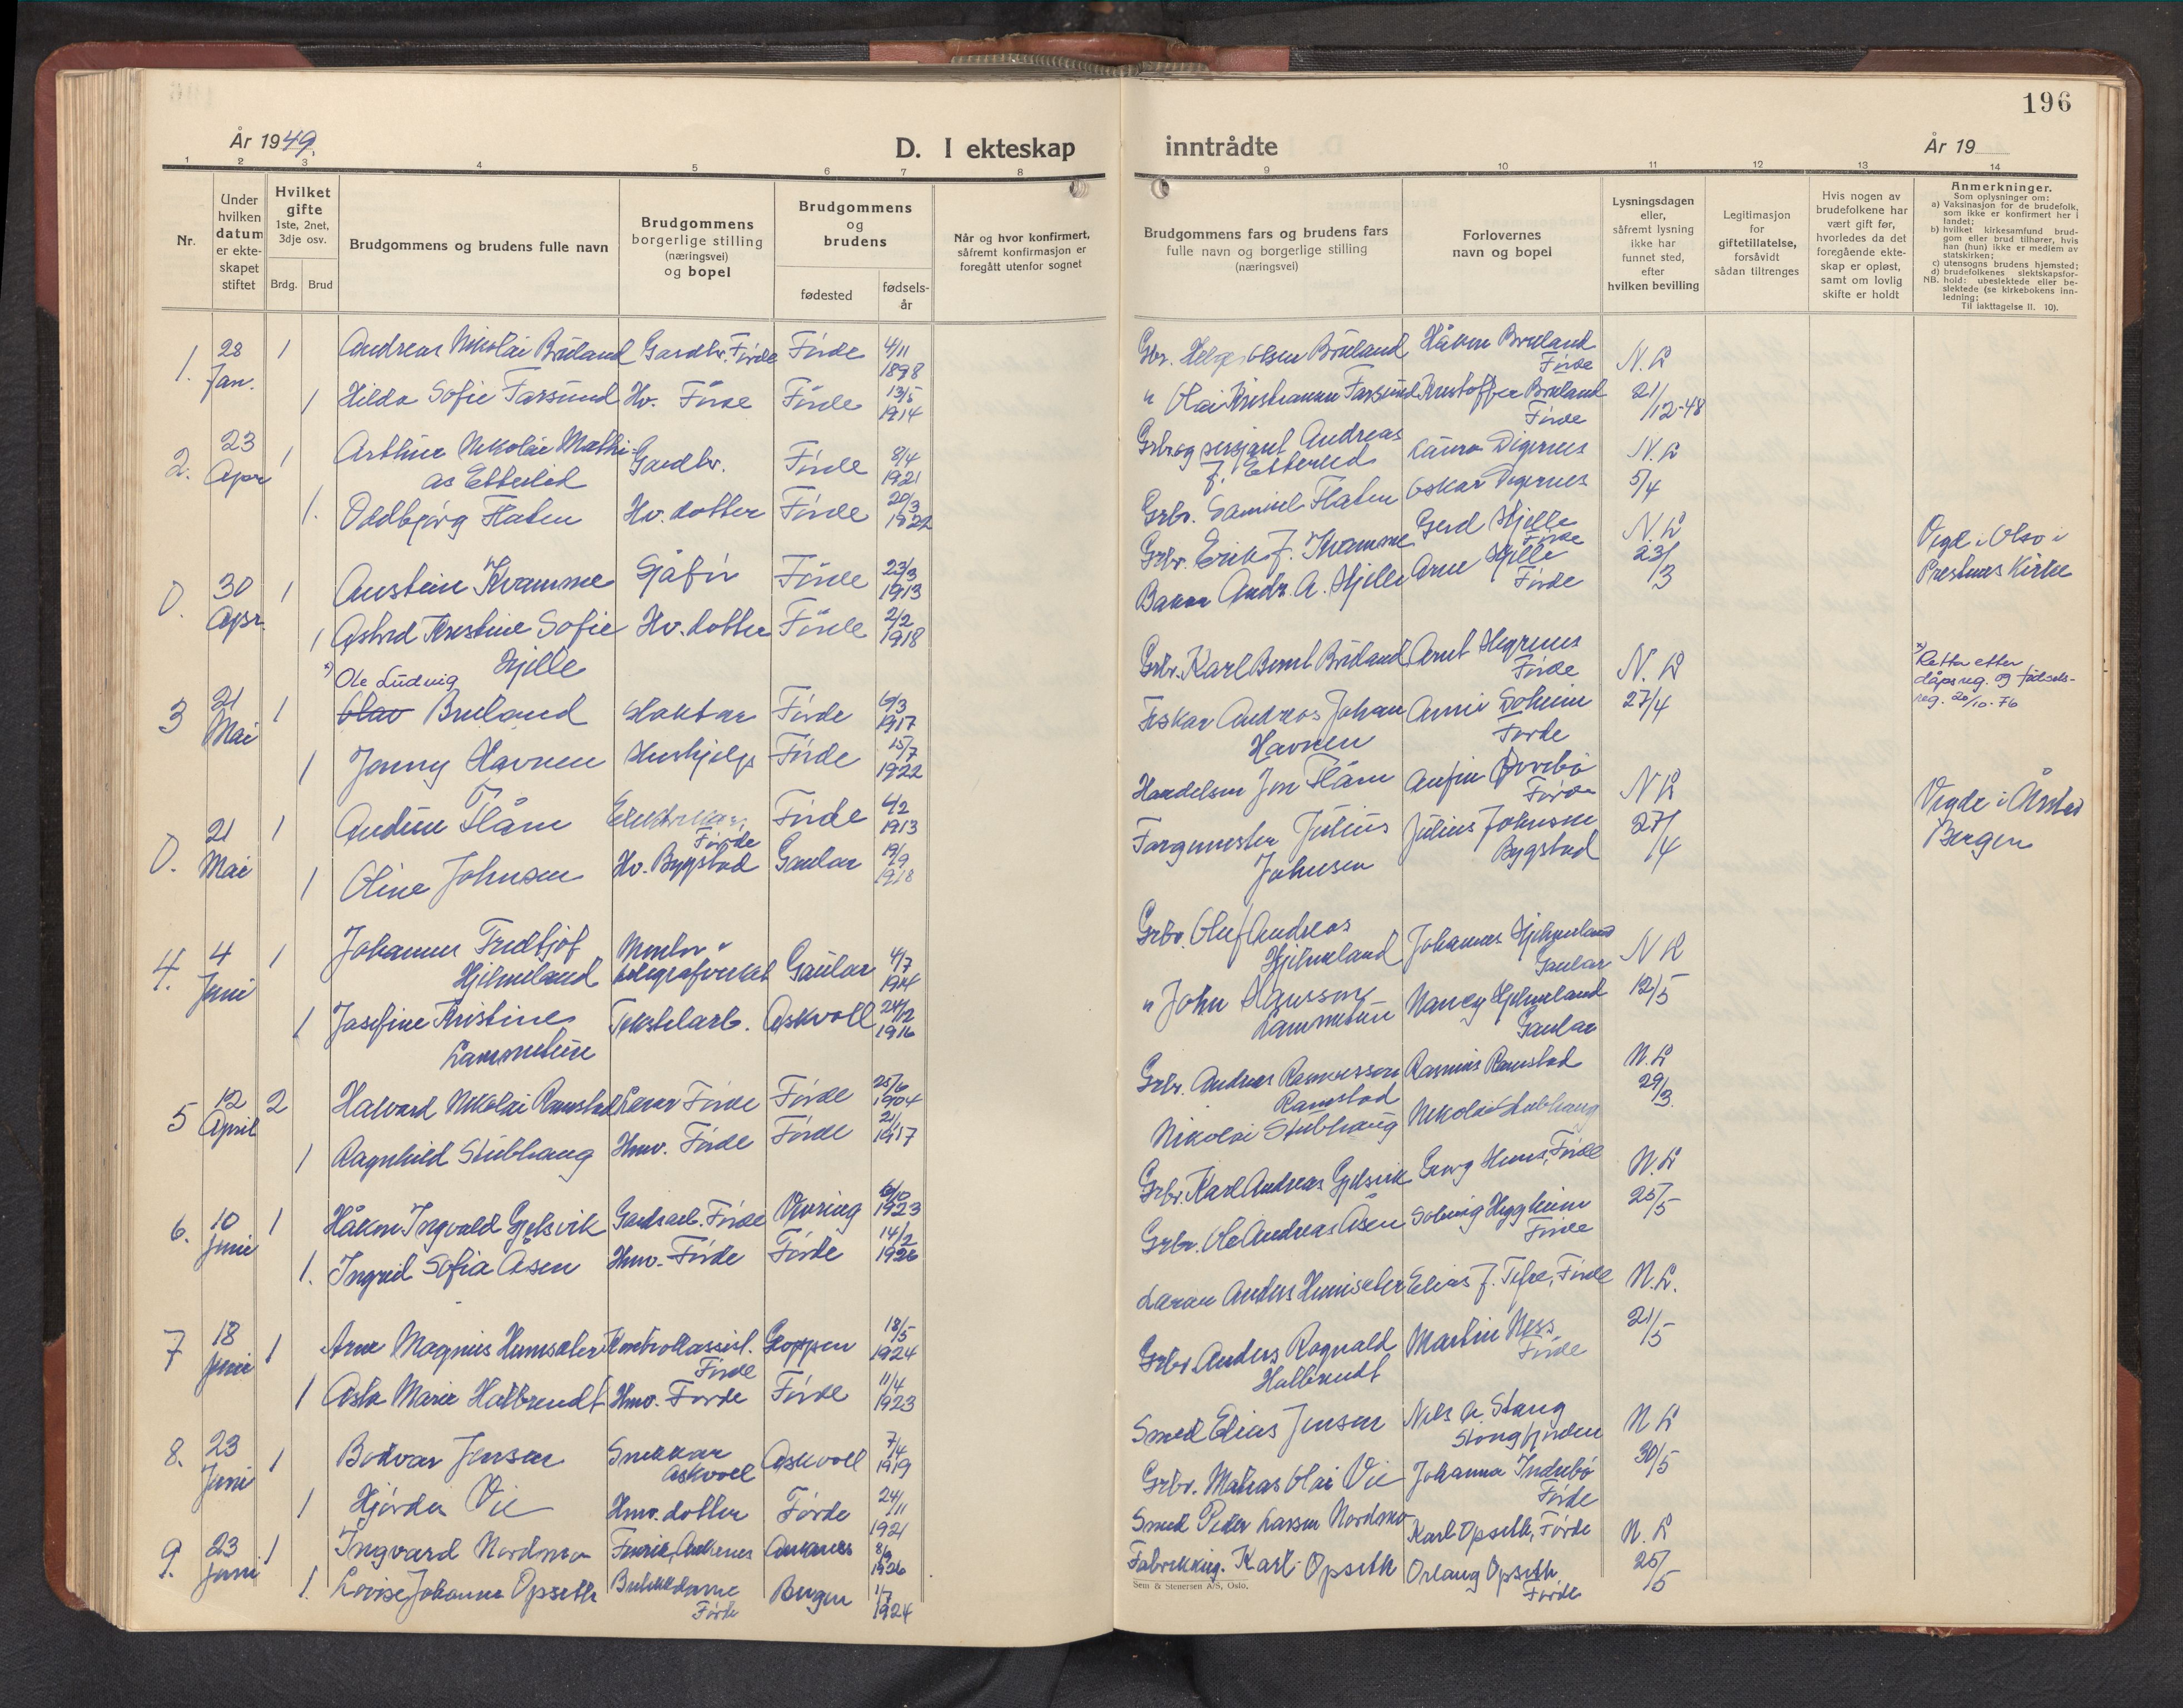 196
År 1949.
D. I ekteskap
inntrådte
År 19
1 2 3 4 5 6 7 8 9 10 11 12 13 14
Nr.
Under
hvilken
datum
er ekte-
skapet
stiftet
Hvilket
gifte
1ste, 2net,
3dje osv.
Brdg. Brud
Brudgommens og brudens fulle navn
Brudgommens
borgerlige stilling
(næringsvei)
og bopel
Brudgommens
og
brudens
fødested
fødsels-
år
Når og hvor konfirmert,
såfremt konfirmasjon er
foregått utenfor sognet
Brudgommens fars og brudens fars
fulle navn og borgerlige stilling
(næringsvei)
Forlovernes
navn og bopel
Lysningsdagen
eller,
såfremt lysning
ikke har
funnet sted,
efter
hvilken bevilling
Legitimasjon
for
giftetillatelse,
forsåvidt
sådan tiltrenges
Hvis nogen av
brudefolkene har
vært gift før,
hvorledes da det
foregående ekte-
skap er opløst,
samt om lovlig
skifte er holdt
Anmerkninger.
Som oplysninger om:
a) Vaksinasjon for de brudefolk,
som ikke er konfirmert her i
landet;
b) hvilket kirkesamfund brud-
gom eller brud tilhører, hvis
han (hun) ikke er medlem av
statskirken;
c) utensogns brudens hjemsted;
d) brudefolkenes slektskapsfor-
NB. hold: ubeslektede eller be-
slektede (se kirkebokens inn-
ledning;
Til iakttagelse II. 10).
1. 28 Jan. 1 Andreas Nikolai Bruland Gardbr. Førde Førde 4/11 1898
Gbr. Helge Olsen Bruland Håkon Bruland Førde N.L
1 Hilda Sofie Farsund Hv. Førde Førde 13/5 1914
" Olai Kristiansen Farsund Kristoffer Bruland Førde 21/12-48
2. 23 Apr 1 Arthur Nikolai Mathi-
as Etterlid Gardbr. Førde 8/4 1921
Grbr og sersjant Andreas
J. Etterlid Laura Digernes N.L
1. Oddbjørg Flaten Hv. dotter Førde 20/3 1922
Grbr. Samuel Flaten Oskar Digernes 5/4
0. 30 Apr. 1 Austein Kvamme Sjåfør Førde 23/3 1913
Grbr. Erik J. Kvamme Gerd Hjelle Førde N.L
1 Astrid Kristine Sofie
Hjelle Hv. dotter Førde 2/2 1918
Bakar Andr. A. Hjelle Arne Hjelle Førde 23/3
Vigde i Oslo i
Prestnes Kirke
3 21 Mai 1 x) Ole Ludvig
Olav Bruland Slaktar Førde 6/3 1917
Grbr. Karl Bernt Bruland Arnt Hegrenes Førde N.L
x) Retta etter
dåpsreg. og fødsels-
reg. 20/10-76
1 Jenny Havnen Hushjelp Førde 15/7 1922
Fiskar Andreas Johan
Havnen Anni Solheim Førde 27/4
0. 21 Mai 1 Audun Flåm Førde Førde 6/2 1913
Handelsm Jon Flåm Førde N L
1 Oline Johnsen Hv. Bygstad Gaular 19/9 1918
Fargemester Julius
Johnsen Julius Johnsen Bygstad 27/4
Vigde i Årstad
Bergen
4. 4 Juni 1 Johannes Fridtjof
Hjelmeland Montør v
telegrafverket Gaular 4/7 1914
Grbr. Oluf Andreas
Hjelmeland Johannes Hjelmeland Gaular N L
1 Josefine Kristine
Lammetun Tekstilarb. Askvoll 24/12 1916
" John Hansson
Lammetun Nancy Hjelmeland Gaular 12/5
5 12 April 2 Halvard Nikolai Ramstad Lærar Førde Førde 25/6 1904
Grbr. Andreas Rasmussen
Ramstad Rasmus Ramstad N.L
1 Ragnhild Stubhaug Hmv. Førde Førde 1917
Nikolai Stubhaug Nikolai Stubhaug 29/3.
6. 10 Juni 1 Håkon Ingvald Gjelsvik Gardsarb. Førde Vevring 6/10 1923
Grbr. Karl Andreas Gjelsvik Georg Huus, Førde N.L
1. Ingrid Sofia Åsen Hmv. Førde Førde 14/2 1926
Grbr. Ole Andreas Åsen Solveig Hyggheim Førde 25/5
7 18 Juni 1 Arne Magnus Humseter Kontrollassist. Førde Gloppen 18/5 1924
Lærar Anders Humseter Elias J. Tefre, Førde N.L.
1 Asta Marie Halbrendt Hmv. Førde Førde 11/4 1923
Grbr. Anders Ragnvald
Halbrendt Martin Ness Førde 21/5
8. 23 Juni 1 Bodvar Jensen Snekkar Askvoll Askvoll 7/4 1919
Smed Elias Jensen Nils A. Stang Stongfjorden N L
1 Hjørdis Vie Hmv. dotter Førde 24/11 1921
Grbr. Matias Olai Vie Johanna Indrebø Førde 30/5
9. 23 Juni 1 Ingvard Nordmo Ankenes 1926
Smed Peder Larsen Nordmo Karl Opseth, Førde N. L
1. Lovise Johanna Opseth Butikkdame Førde Bergen 1/7 1924
Fabrikkarg. Karl Opseth Oslaug Opseth Førde 25/5
Sem & Stenersen A/S, Oslo.